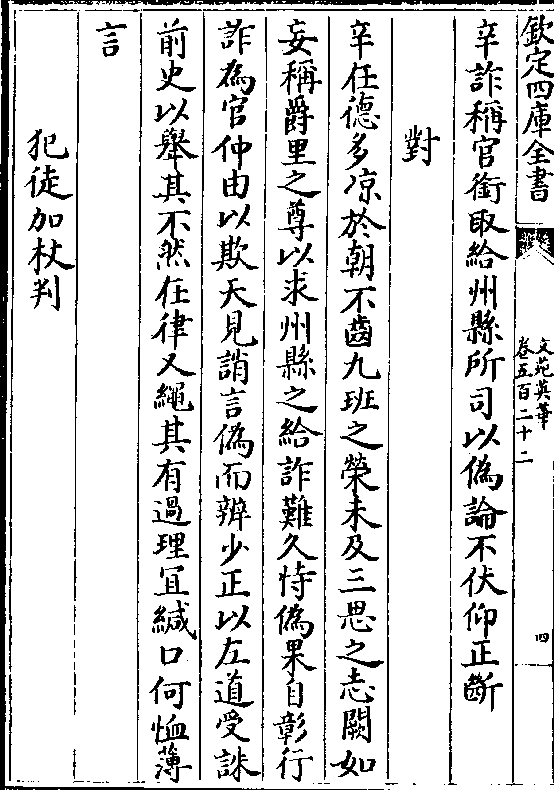 欽定四庫全書
文苑英華
卷五百二十二
四
辛詐稱官銜取給州縣所司以偽論不伏仰正斷
對
辛任德多凉於朝不齒九班之榮未及三思之志闕如
妄稱爵里之尊以求州縣之給詐難久恃偽果自彰行
詐為官仲由以欺天見誚言偽而辨少正以左道受誅
前史以舉其不然在律又繩其有過理宜緘口何恤薄
言
犯徒加杖判